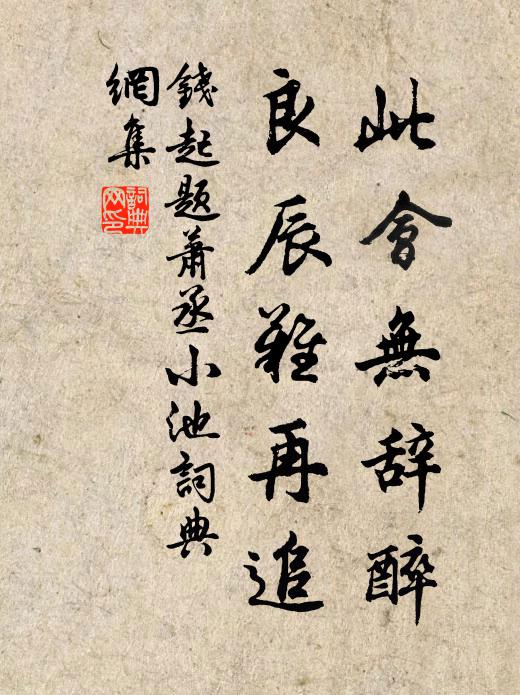 此會無辞醉
良辰難再追
錢起题蕭丞小池詞典
網集
詞典网印